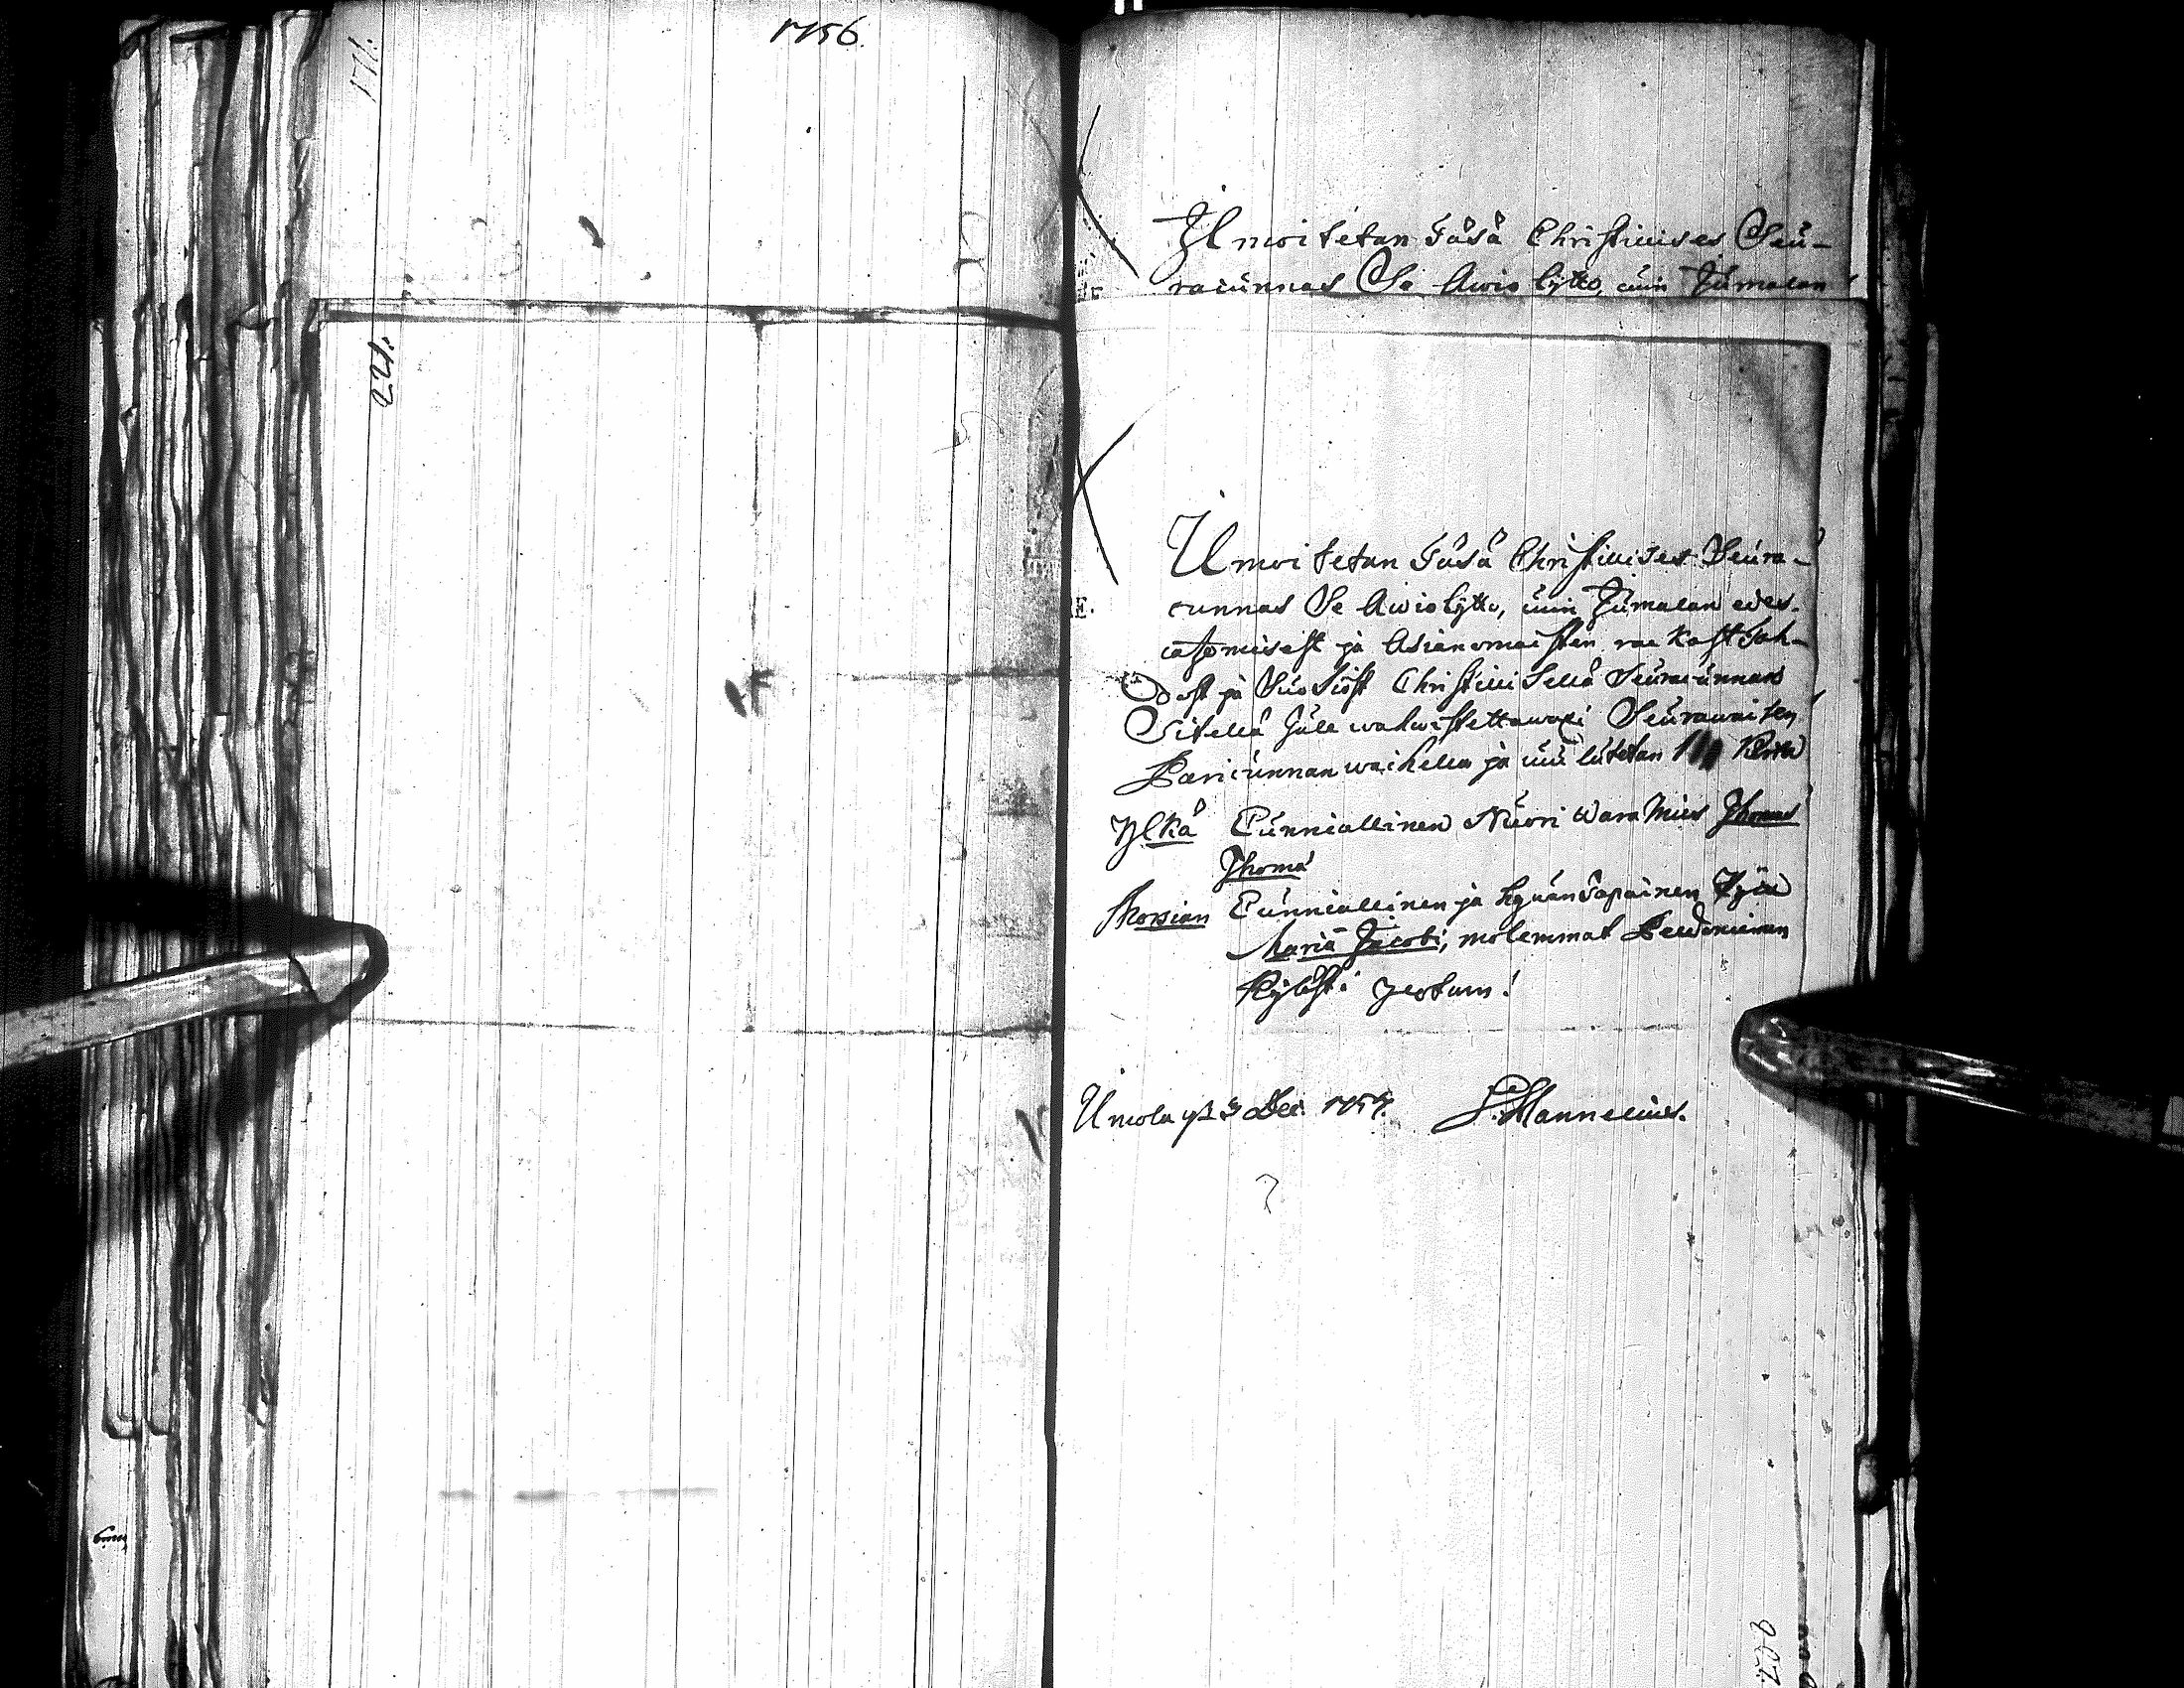 1756.
171.
221.
Ilmoitetan Täsä Christillises Seu-
racunnas Se Awio Kytto, cuin Jumalan
Ilmoitetan Täsä Christillises Seura-
cunnas Se Awiokytto, cuin Jumalan edes-
catzomisest ja Asianomaisten rackast Tah-
dost ja Suosiost Christillisellä Seuracunnans
Sitellä Julewahwistettawaxi Seurawaisten
Pariscunnan waihella ja nuin lutetan Kerta
Ylkä Cunniallinen Nuori wara Mies Thomas
Thoma
Morsian Cunniallinen ja hywän Tapainen Pijca
Maria Jacobi, molemmat
Kyläst:
d. 3 Dec. 1757. Mannelius.
206
E.